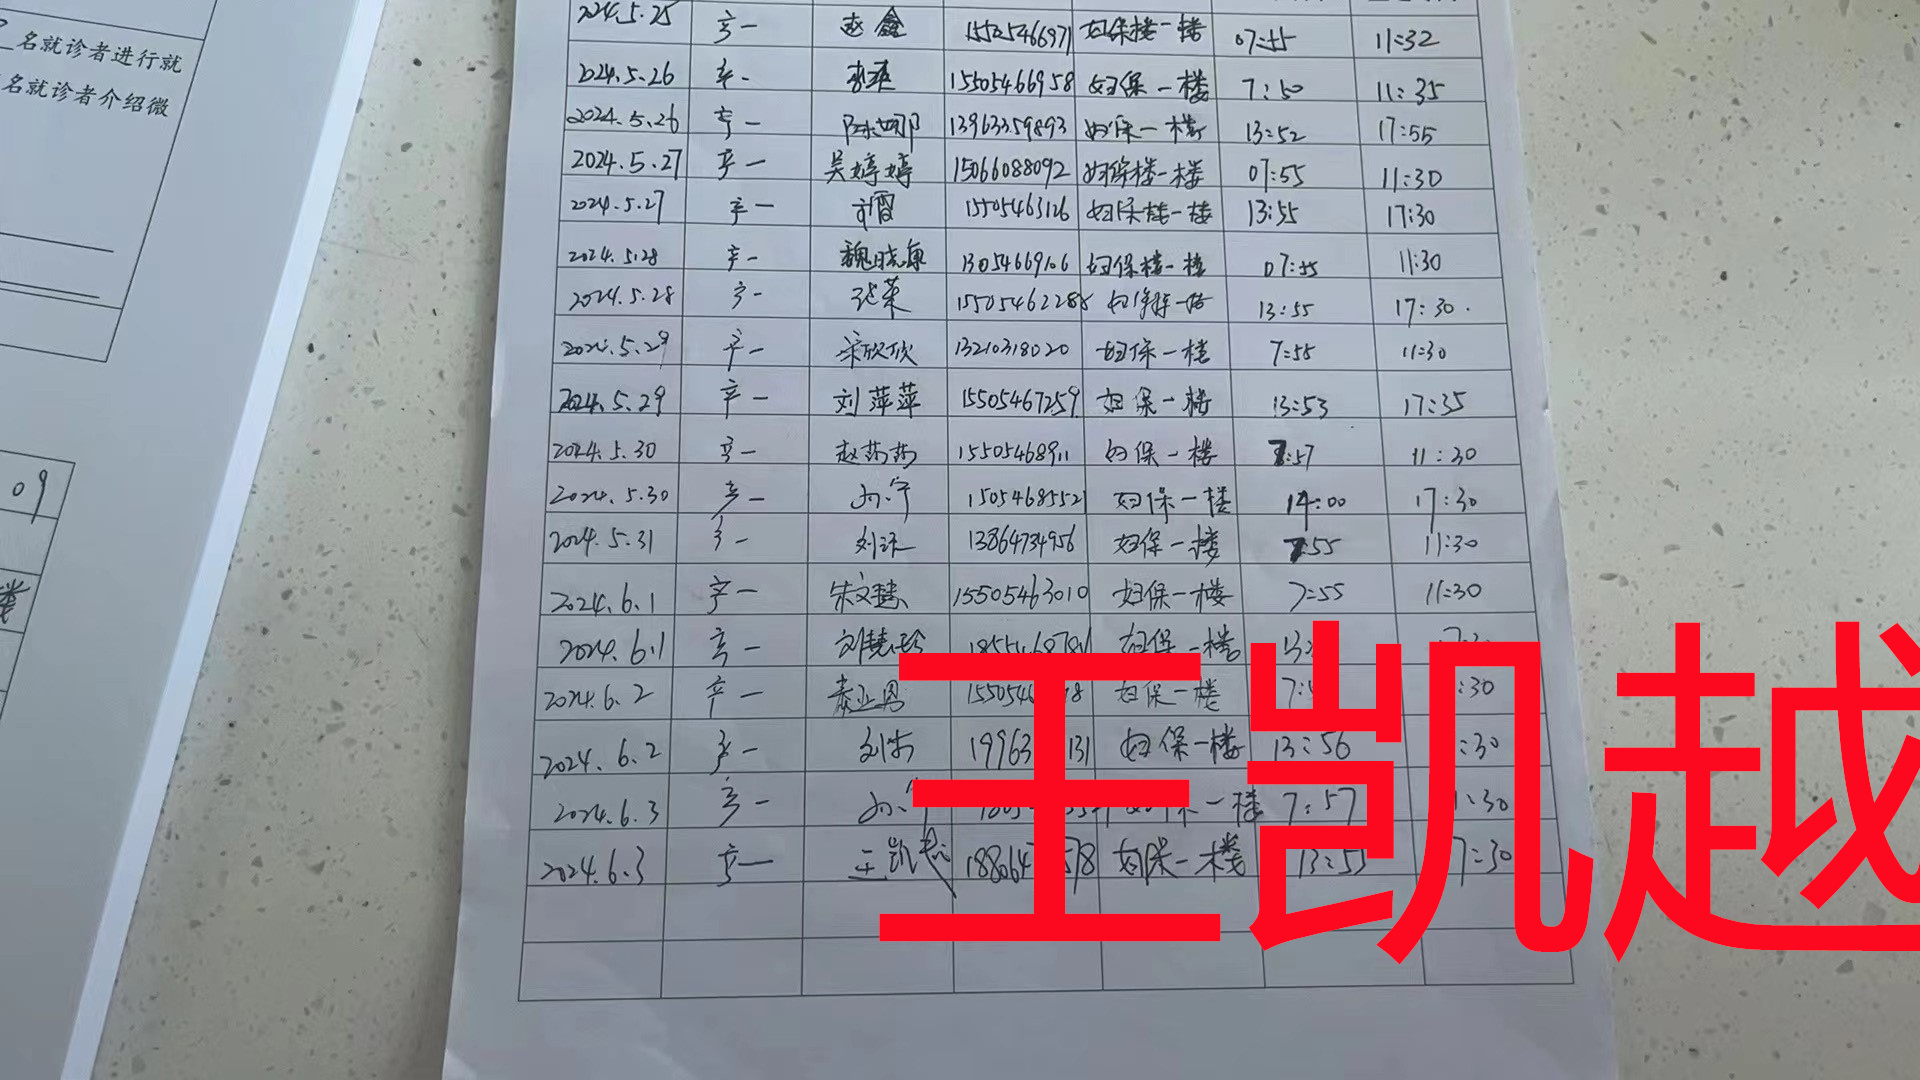 名就诊者进行就
名就诊者介绍微
09
楼
2024.5.25 辛一 赵鑫 15525466971 妇保楼一楼 07:55 11:32
2024.5.26 辛一 15505466958 妇保一楼 7:50 11:35
2024.5.26 辛一 陈娜 13963359893 妇保一楼 13:52 17:55
2024.5.27 辛一 吴婷婷 15066088092 妇保楼一楼 07:55 11:30
2024.5.27 辛一 15505463126 妇保楼一楼 13:55 17:30
2024.5.28 辛一 魏晓康 13054669106 妇保楼一楼 07:55 11:30
2024.5.28 辛一 张荣 15505462288 妇保一楼 13:55 17:30.
2024.5.29 辛一 宋欣欣 13210318020 妇保一楼 7:55 11:30
2024.5.29 辛一 刘萍萍 15505467259 妇保一楼 13:53 17:35
2024.5.30 辛一 赵莎莎 15505468911 妇保一楼 7:57 11:30
2024.5.30 辛一 孙宁 15054685521 妇保一楼 14:00 17:30
2024.5.31 辛一 13864734956 妇保一楼 7:55 11:30
2024.6.1 辛一 朱文慧 15505463010 妇保一楼 7:55 11:30
2024.6.1 辛一 刘慧玲 妇保一楼
2024.6.2 辛一 秦亚男 妇保一楼 :30
2024.6.2 辛一 19963 131 妇保一楼 13:56 :30
2024.6.3 辛一 孙宁 妇保一楼 7:57 11:30
2024.6.3 辛一 王凯越 妇保一楼 13:55 17:30
王凯越